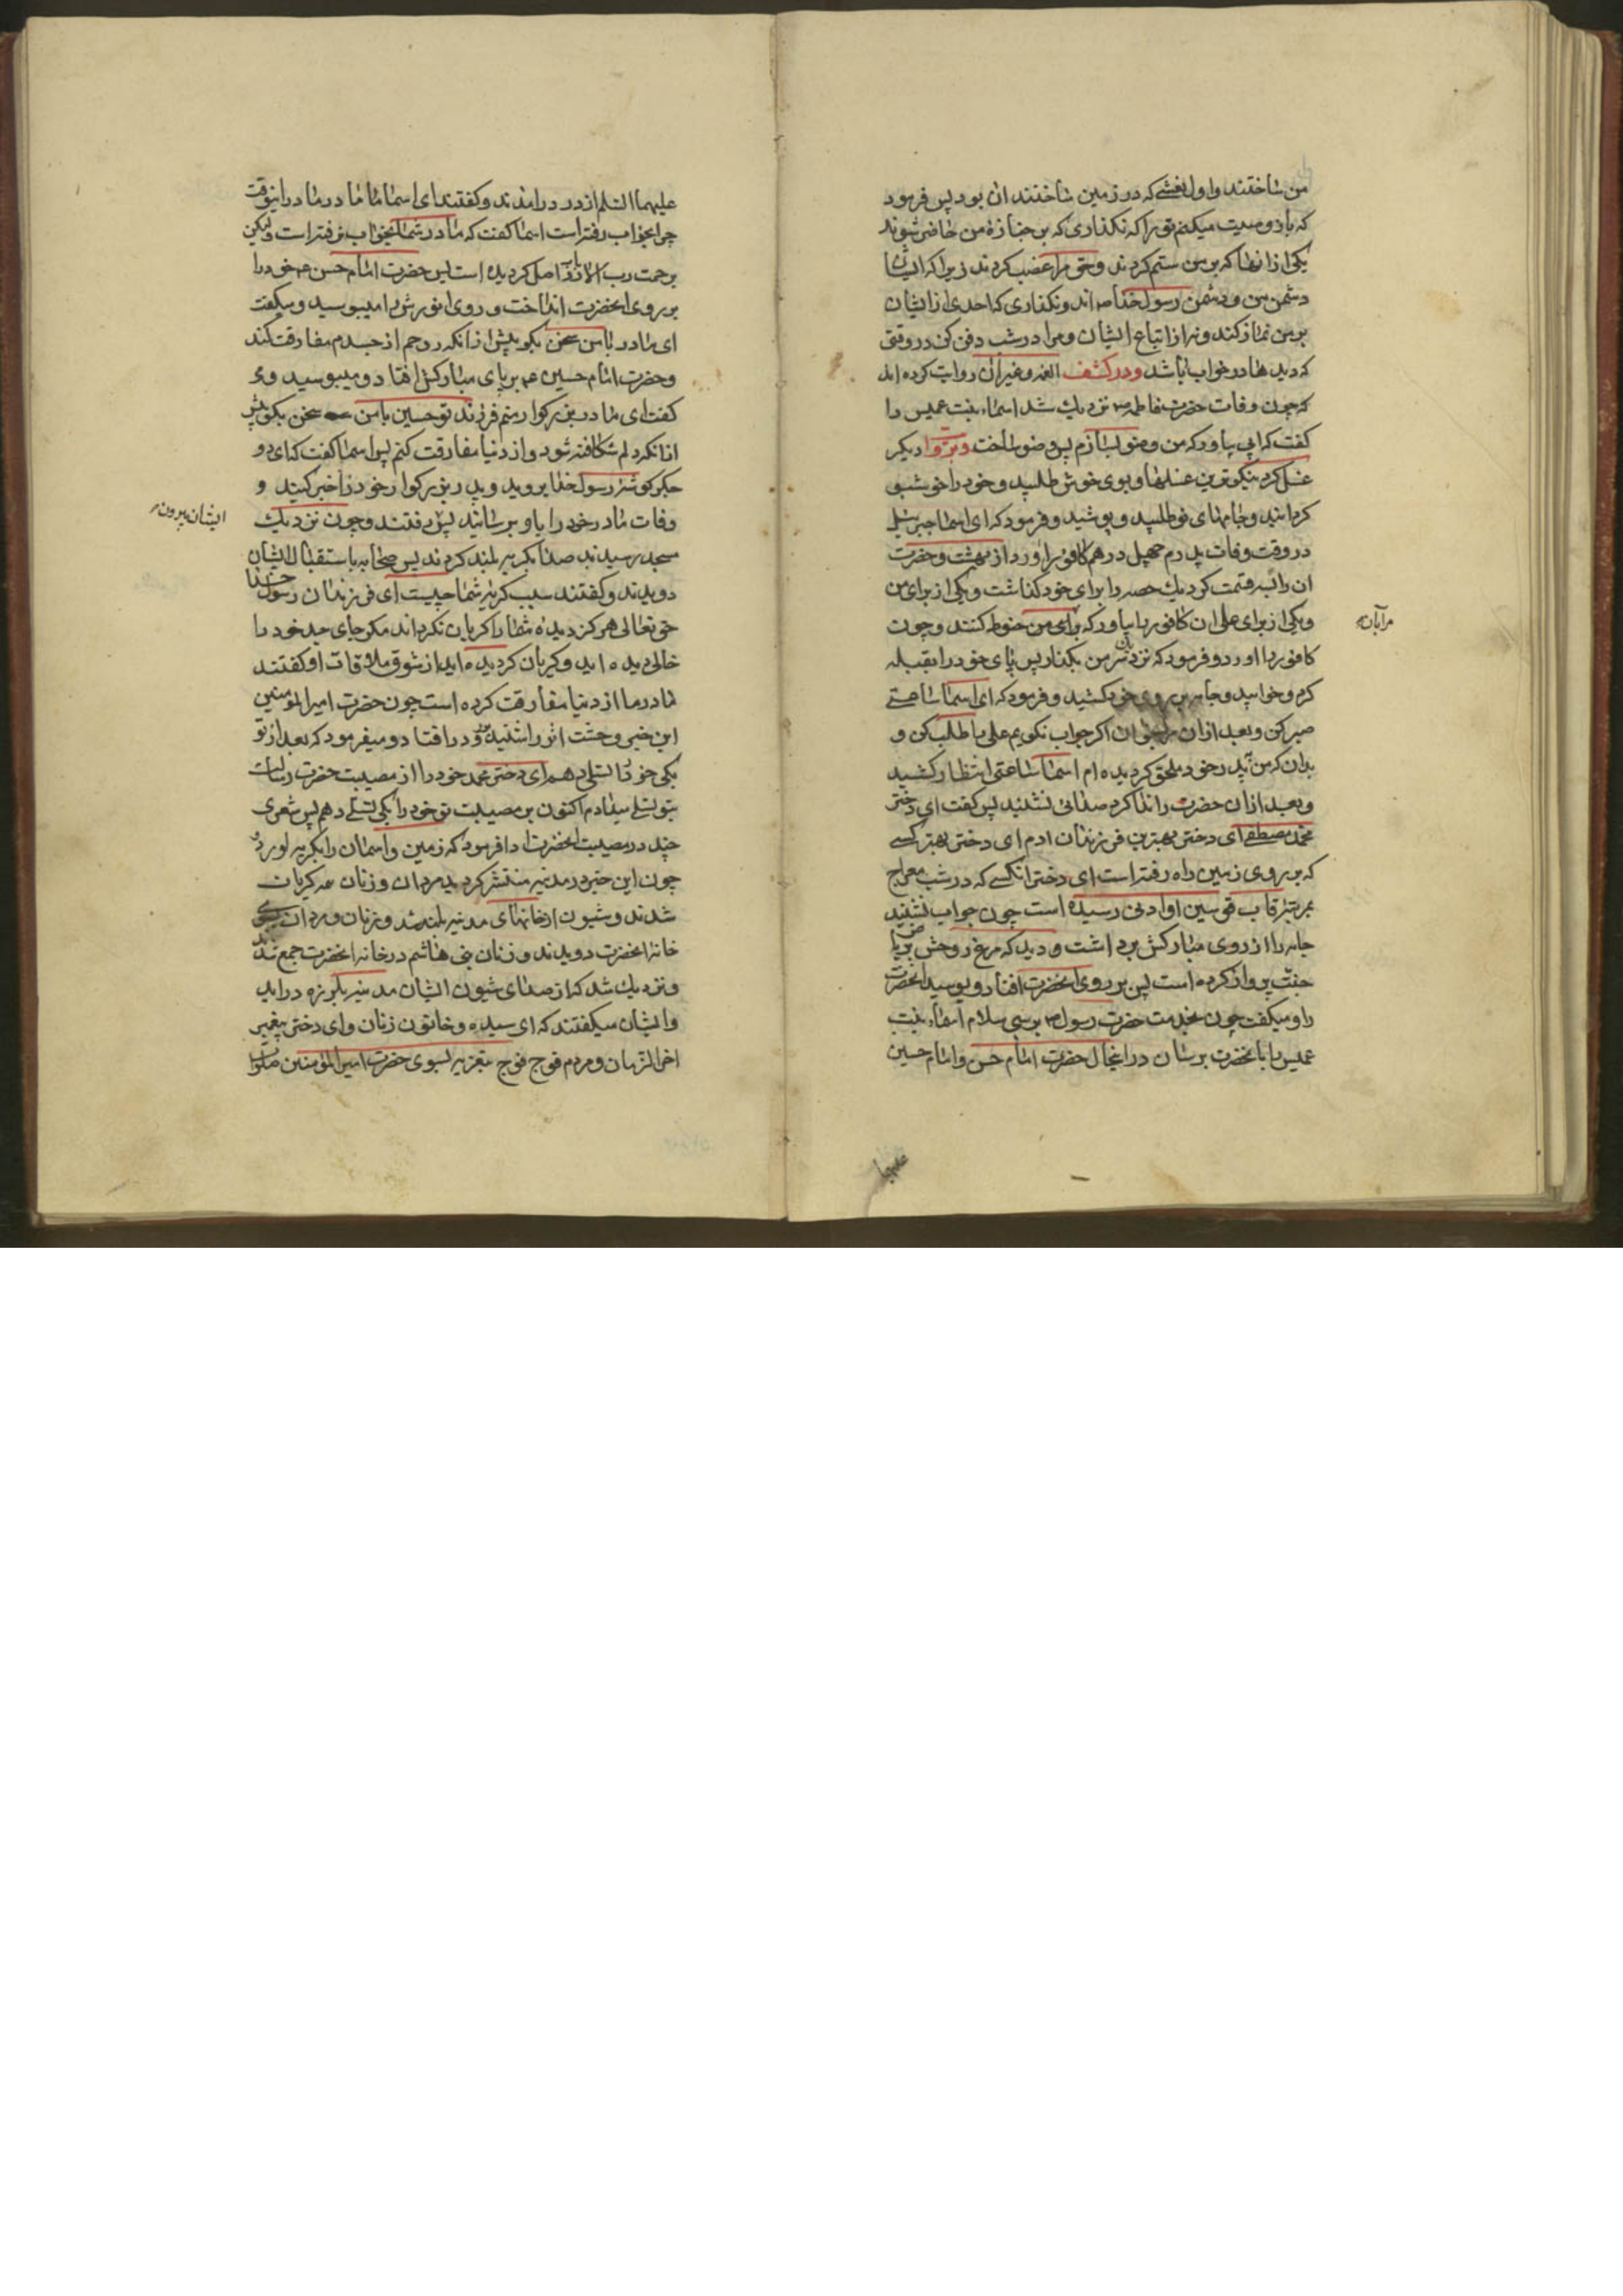 من ساختند و اول نعشی که در زمین ساختند ان بود پس فرمود
که باز وصیت میکنم تو را که نکذاری که بر جنازه من حاضر شوند
یکی از انها که بر من ستم کردند و حق مرا غضب کردند زیرا که ایشان
دشمن من و دشمن رسول خدا ص اند و نکذاری که احدی از ایشان
بر من نماز کند و نه از اتباع ایشان و مرا در شب دفن کن در وقتی
که دیدها در خواب باشد و در کشف الغمه و غیر ان روایت کرده اند
که چون وفات حضرت فاطمه نزدیک شد اسماء بنت عمیس را
کفت که ابی بیاور که من وضو بسازم پس وضو ساخت و بروا دیکر
غسل کرد نیکوترین غسلها و بوی خوش طلبید و خود را خوشبو
کردانید و جامهای نو طلبید و پوشید و فرمود که ای اسما جبرئیل
در وقت وفات پدرم چهل درهم کافور اورد از بهشت و حضرت
ان را سه قسمت کرد یک حصه را برای خود کذاشت و یکی از برای من
و یکی از برای علی ان کافور را بیاور که برای من حنوط کنند و چون
مرابان
کافور را اورد و فرمود که نزد سر من بکذار پس پای خود را بقبله
کرد و خوابید و جامه بر روی خود کشید و فرمود که ای اسما ساعتی
صبر کن و بعد از ان مرا بخوان اکر جواب نکویم علی را طلب کن و
بدان که من بپدر خود ملحق کردیده ام اسما ساعتی انتظار کشید
و بعد از ان حضرت را ندا کرد صدائی نشنید پس کفت ای دختر
محمد مصطفی ای دختر بهترین فرزندان ادم ای دختر بهتر کسی
که بر روی زمین راه رفته است ای دختر انکسی که در شب معراج
بمرتبه قاب قوسین او ادنی رسیده است چون جواب نشنید
جامه را از روی مبارکش برداشت و دید که مرغ روحش بریاض
جنت پرواز کرده است پس بر روی انحضرت افتاد و بوسید انحضرت
را و میکفت چون بخدمت حضرت رسول برسی سلام اسماء بنت
عمیس را بانحضرت برسان در اینحال حضرت امام حسن و امام حسین
علیهما
علیهما السلام از در درامدند و کفتند ای اسما مادر ما در اینوقت
چرا بخواب رفته است اسما کفت که مادر شما بخواب نرفته است ولیکن
برحمت رب الارباب واصل کردیده است پس حضرت امام حسن خود را
بر روی انحضرت انداخت و روی انورش را میبوسید و میکفت
ای مادر با من سخن بکو پیش از انکه روحم از جسدم مفارقت کند
و حضرت امام حسین بر پای مبارکش افتاد و میبوسید و
کفت ای مادر بزرکوار منم فرزند تو حسین با من سخن بکو پیش
از انکه دلم شکافته شود و از دنیا مفارقت کنم پس اسما کفت که ای دو
جکرکوشه رسول خدا بروید و پدر بزرکوار خود را خبر کنید و
وفات مادر خود را باو برسانید پس رفتند و چون نزدیک
ایشان بیرون
مسجد رسیدند صدا بکریه بلند کردند پس صحابه باستقبال ایشان
دویدند و کفتند سبب کریه شما چیست ای فرزندان رسول خدا
حق تعالی هرکز دیده شما را کریان نکرداند مکر جای جد خود را
خالی دیده اید و کریان کردیده اید از شوق ملاقات او کفتند
مادر ما از دنیا مفارقت کرده است چون حضرت امیر المومنین
این خبر وحشت اثر را شنید بر رو درافتاد و میفرمود که بعد از تو
بکی خود را تسلی دهم ای دختر محمد خود را از مصیبت حضرت رسالت
بتو تسلی میدادم اکنون بر مصیبت تو خود را بکی تسلی دهم پس شعری
چند در مصیبت انحضرت ادا فرمود که زمین و اسمان را بکریه اورد
چون این خبر در مدینه منتشر کردید مردان و زنان همه کریان
شدند و شیون از خانهای مدینه بلند شد و زنان و مردان بسوی
خانه انحضرت دویدند و زنان بنی هاشم در خانه انحضرت جمع شدند
و نزدیک شد که از صدای شیون ایشان مدینه بلرزه دراید
و ایشان میکفتند که ای سیده و خاتون زنان و ای دختر پیغمبر
اخر الزمان و مردم فوج فوج بتعزیه بسوی حضرت امیر المؤمنین صلوات